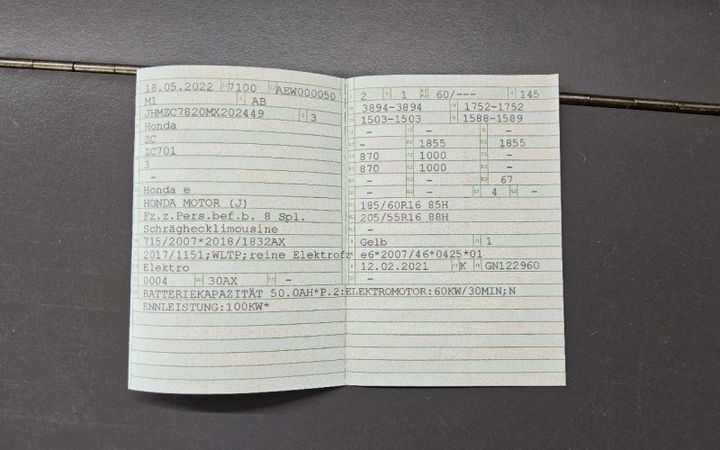 18.05.2022 7100 AEW000050
M1 AB
JHMZC7820MX202449 3
Honda
ZC
ZC701
3
-
Honda e
HONDA MOTOR (J)
Fz.z.Pers.bef.b. 8 Spl.
Schräghecklimousine
715/2007*2018/1832AX
2017/1151;WLTP;reine Elektrofz
Elektro
0004 30AX -
BATTERIEKAPAZITÄT 50.0AH*P.2:ELEKTROMOTOR:60KW/30MIN;N
ENNLEISTUNG:100KW*
2 1 60/--- 145
3894-3894 1752-1752
1503-1503 1588-1589
- - -
- 1855 1855
870 1000 -
870 1000 -
- - 67
- - 4 -
185/60R16 85H
205/55R16 88H
-
Gelb 1
e6*2007/46*0425*01
12.02.2021 K GN122960
-